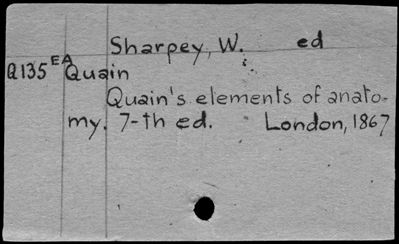 Sharpey, W. ed
Q135 EA Quain
Quain's elements of anato-
my. 7-th ed. London, 1867